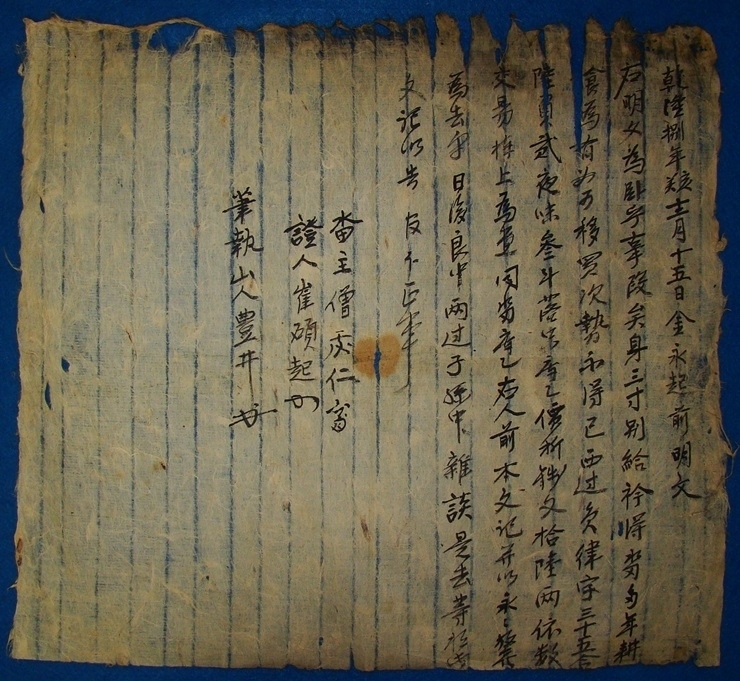 乾隆捌年癸亥十二月十五日金永起前明文
右明文為臥乎事段矣身三寸別給衿得畓多年耕
食為有如可移買次勢不得已西过員律字三十五
陸員貳夜味參斗落只庫乙價折錢文拾陸兩依數
交易捧上為遣同畓庫乙右人前本文記并以永永放賣
為去乎日後良中两过子孫中雜談是去等
文記以告官卞正事
畓主僧處仁
證人崔碩起
筆執山人豊井